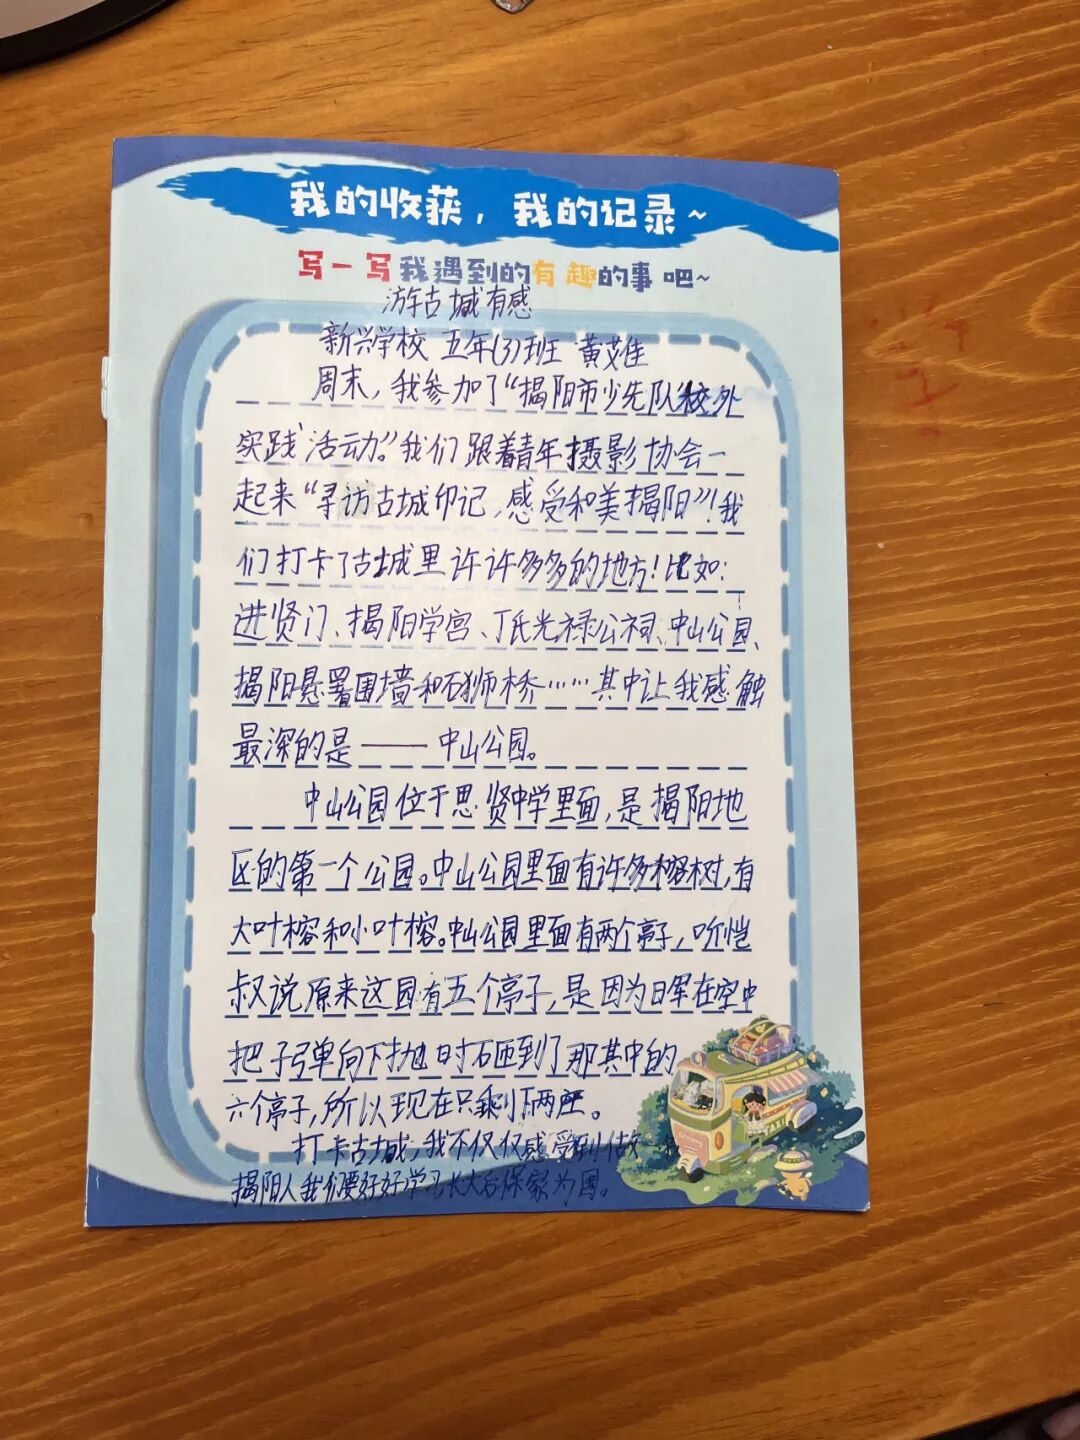 我的收获，我的记录~
写一写我遇到的有趣的事吧~
游古城有感
新兴学校 五年(3)班 黄艾佳
周末，我参加了“揭阳市少先队校外
实践活动”。我们跟着青年摄影协会一
起来“寻访古城印记，感受和美揭阳”！我
们打卡了古城里许许多多的地方！比如：
进贤门、揭阳学宫、丁氏光禄公祠、中山公园、
揭阳县署围墙和石狮桥……其中让我感触
最深的是——中山公园。
中山公园位于思贤中学里面，是揭阳地
区的第一个公园。中山公园里面有许多榕树，有
大叶榕和小叶榕。中山公园里面有两个亭子，听恺
叔说原来这园有五个亭子，是因为日军在空中
把子弹向下抛时砸到了那其中的
六个亭子，所以现在只剩下两座。
打卡古城，我不仅仅感受到做一
揭阳人我们要好好学习长大后保家为国。
TAXI